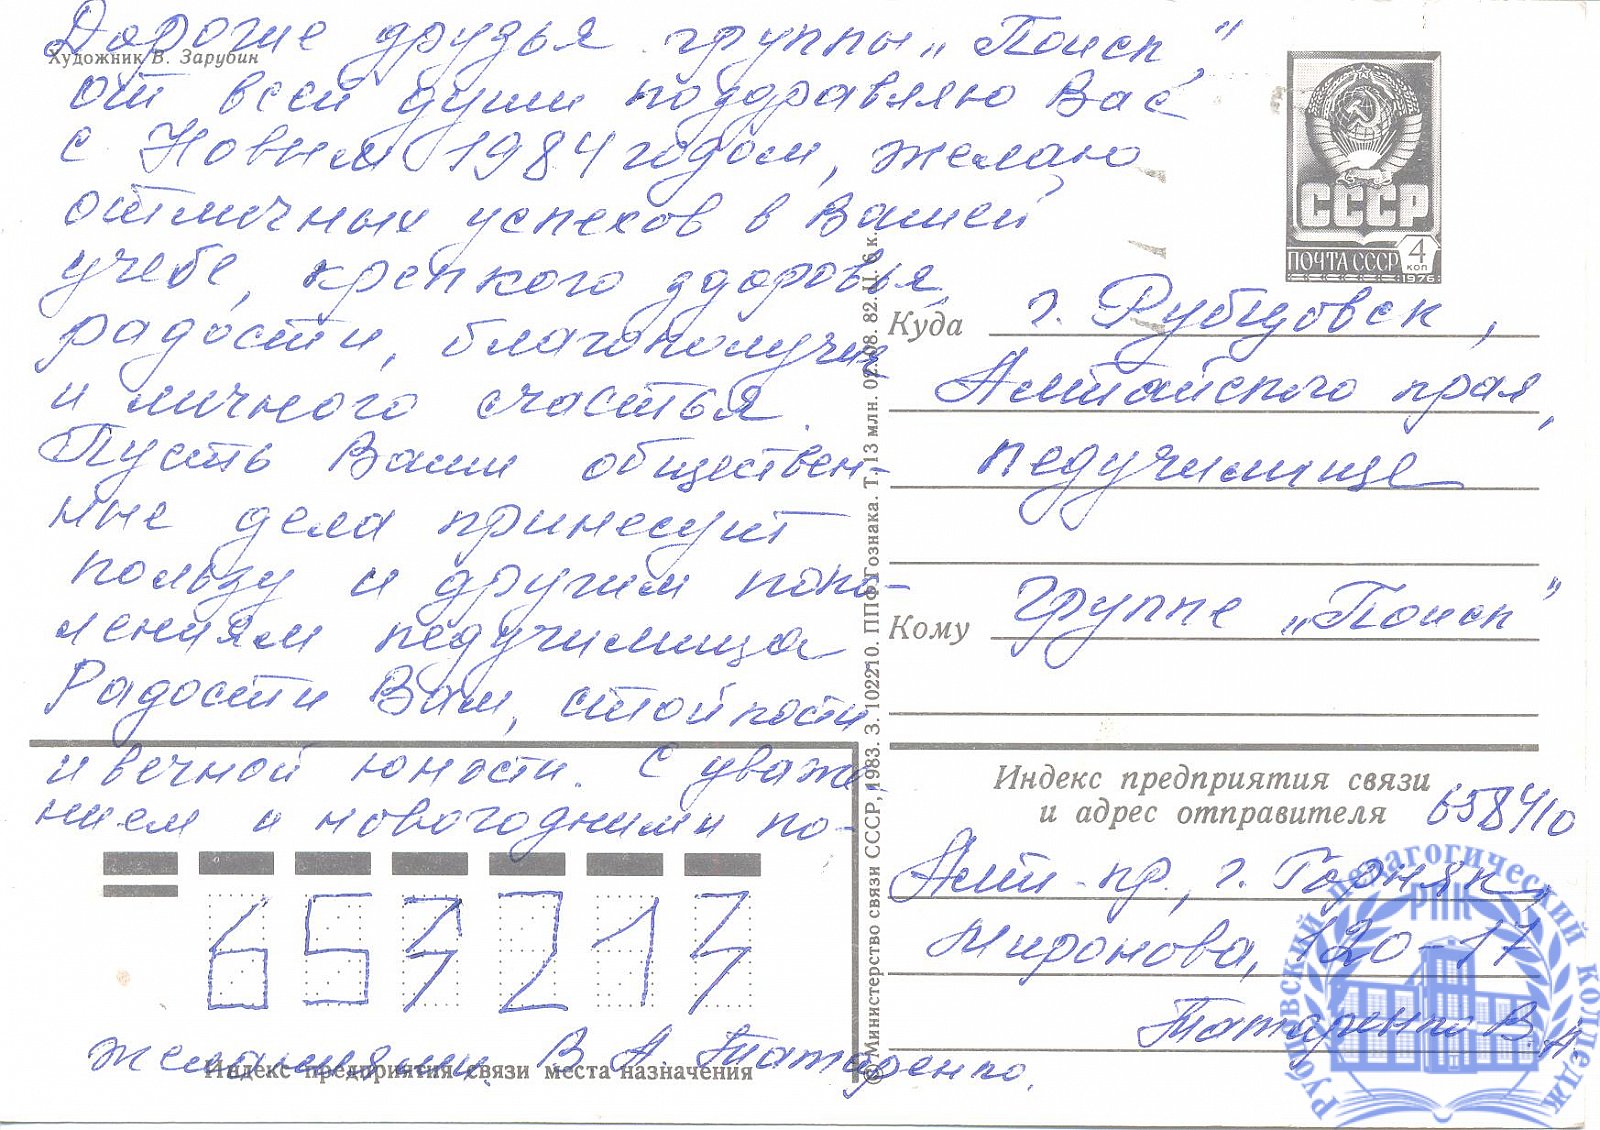 Дорогие друзья группы „Поиск",
Художник В. Зарубин
от всей души поздравляю Вас
с Новым 1984 годом, желаю
отличных успехов в Вашей
учебе, крепкого здоровья,
радости, благополучия
и личного счастья.
Пусть Ваши обществен-
ные дела принесут
пользу и другим поко-
лениям педучилища
Радости Вам, стойкости
и вечной юности. С уваже-
нием и новогодними по-
желаниями В. А. Татаренко.
657217
Индекс предприятия связи места назначения
© Министерство связи СССР, 1983. З. 102210. ППФ Гознака. Т. 13 млн. 02.08. 82. Ц. 6 к.
СССР
ПОЧТА СССР 4 КОП
1976
Куда г. Рубцовск,
Алтайского края,
педучилище
Кому группе „Поиск"
Индекс предприятия связи
и адрес отправителя 658410
Алт. кр., г. Горняк,
Миронова, 120-17
Татаренко В. А.
Рубцовский педагогический колледж
РПК